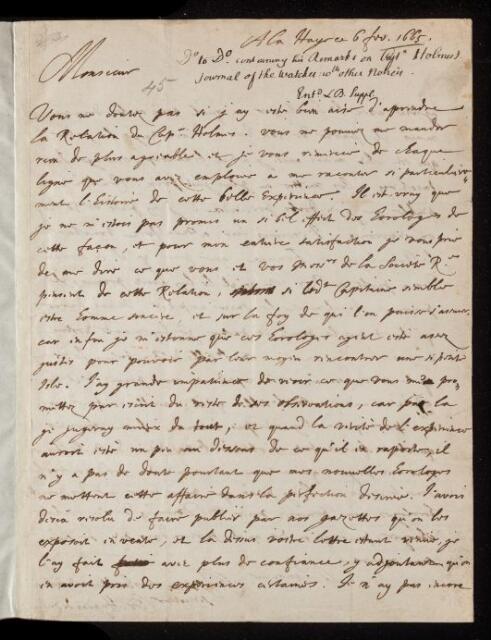 A la Haye ce 6 fev. 1665.
Do to Do containing his Remarks on Capt Holmes's
Journal of the Watches, with other Notices
Monsieur
45
Entd L.B. Suppl
Vous ne doutez pas si j'ay esté bien aise d'apprendre
la Relation du Capn Holmes. vous ne pouviez me mander
rien de plus agreable et je vous remercie de chaque
ligne que vous avez employée a me raconter si particuliere-
ment l'histoire de cette belle Experience. Il est vray que
je ne m'estois pas promis un si bel effect des Horologes de
cette façon, et pour mon entiere satisfaction je vous prie
de me dire ce que vous et vos Messrs de la Societé Rle
pensent de cette Relation, si ledt Capitaine semble
estre homme sincere, et sur la foy de qui l'on puisse s'assurer,
car enfin je m'estonne que ces horologes ayent esté assez
justes pour pouvoir par leur moyen rencontrer une si petite
Isle. J'ay grande impatience de veoir ce que vous me pro-
mettez par escrit du reste de ses observations, car par la
je jugeray mieux du tout, et quand la verité de l'experience
auroit esté un peu au dessous de ce qu'il en raporte, il
n'y a pas de doute pourtant que mes nouvelles horologes
ne mettent cette affaire dans la perfection desirée. J'avois
desia resolu de faire publier par nos gazettes qu'on les
exposoit en vente, et la dessus vostre lettre estant venue, je
l'ay fait avec plus de confiance, y adjoutant qu'on
en avoit pris des experiences certaines. Je n'ay pas encore